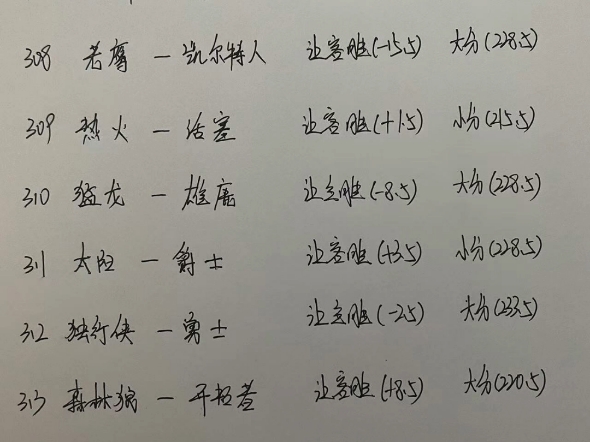 308 老鹰 — 凯尔特人 让客胜(-15.5) 大分(228.5)
309 热火 — 活塞 让客胜(+1.5) 小分(215.5)
310 猛龙 — 雄鹿 让主胜(-8.5) 大分(228.5)
311 太阳 — 爵士 让客胜(+3.5) 小分(228.5)
312 独行侠 — 勇士 让主胜(-2.5) 大分(233.5)
313 森林狼 — 开拓者 让客胜(+8.5) 大分(220.5)